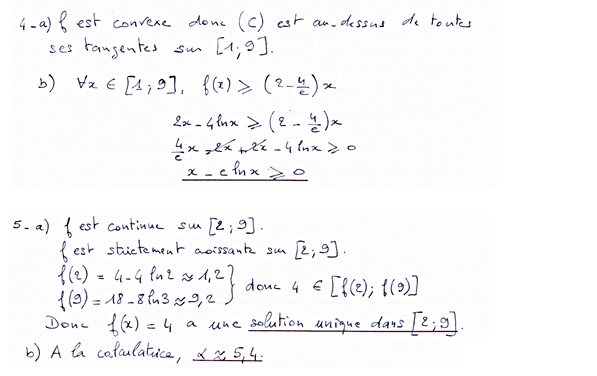 4-a) f est convexe donc (C) est au-dessus de toutes
ses tangentes sur [1;9].
b) ∀x ∈ [1;9], f(x) ⩾ (2-4/e)x
2x-4lnx ⩾ (2-4/e)x
4/e x - 2x + 2x - 4lnx ⩾ 0
x - e lnx ⩾ 0
5-a) f est continue sur [2;9].
f est strictement croissante sur [2;9].
f(2) = 4-4 ln2 ≈ 1,2
f(9) = 18-8ln3 ≈ 9,2 } donc 4 ∈ [f(2); f(9)]
Donc f(x) = 4 a une solution unique dans [2;9].
b) A la calculatrice, α ≈ 5,4.